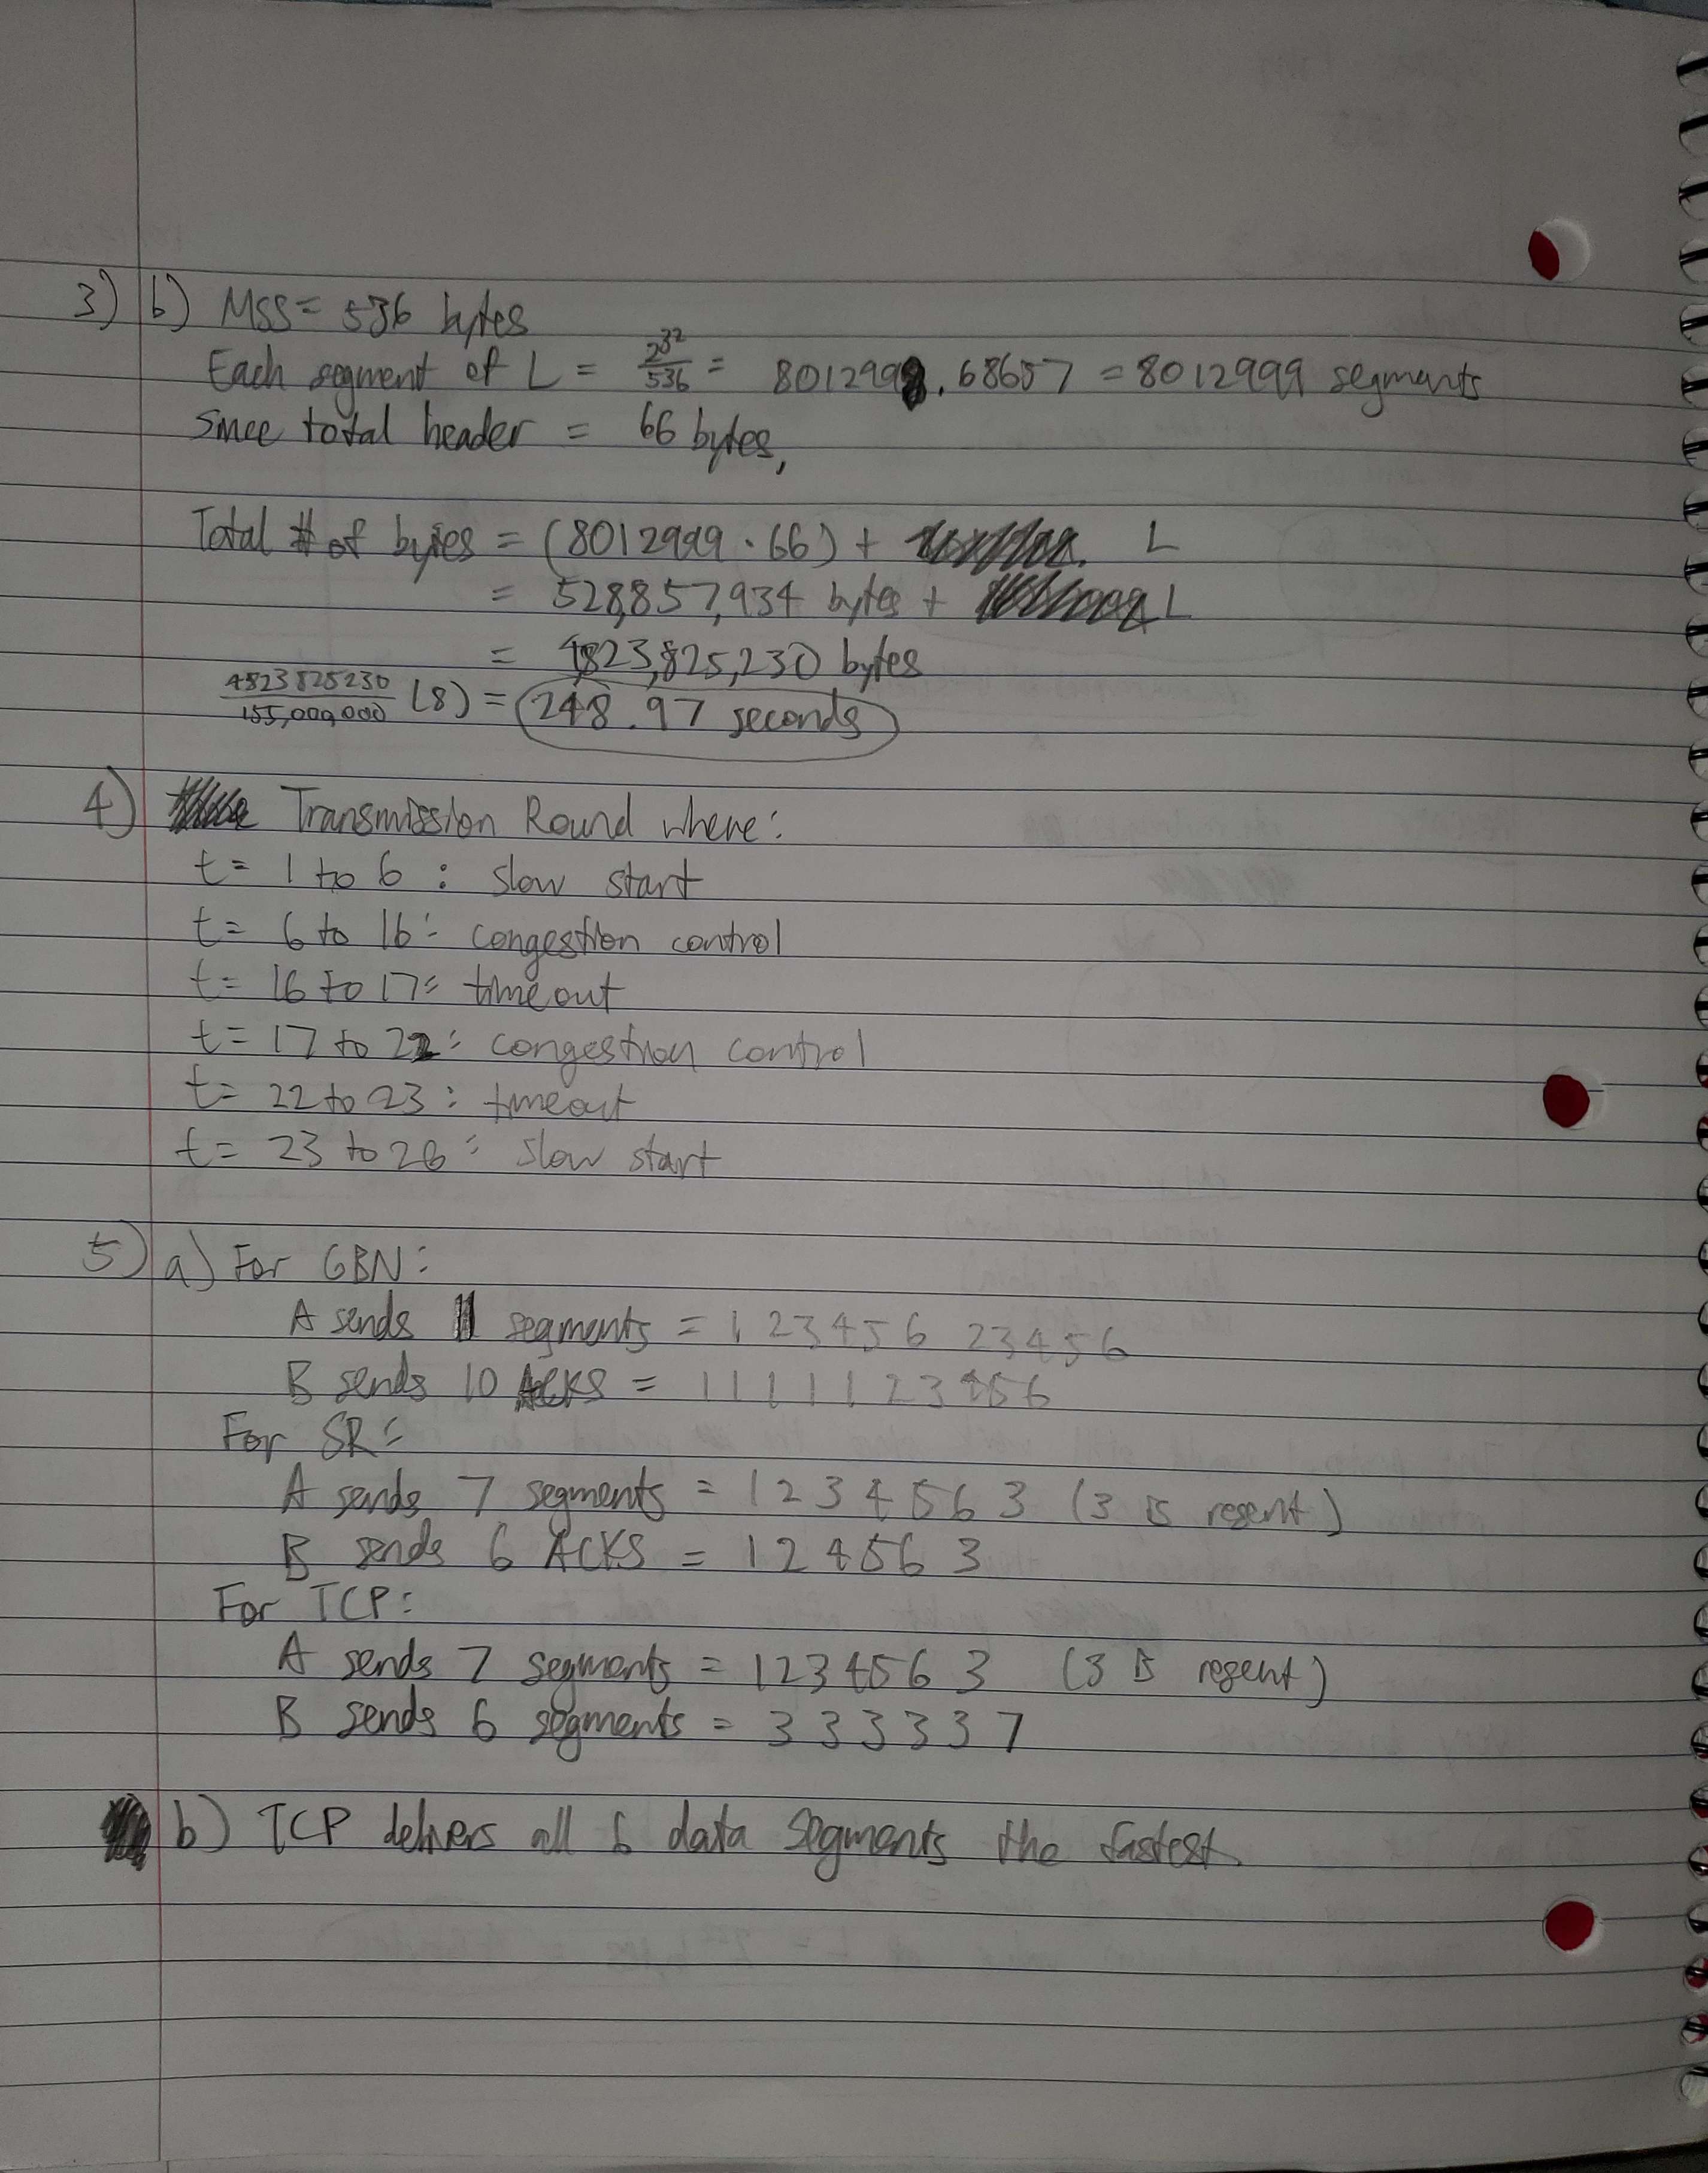 3) b) MSS = 536 bytes
Each segment of L = 2^32/536 = 8012998.68657 = 8012999 segments
Since total header = 66 bytes,
Total # of bytes = (8012999 · 66) + L
= 528,857,934 bytes + L
= 4823,825,230 bytes
4823825230/155,000,000 (8) = 248.97 seconds
4) Transmission Round where:
t = 1 to 6 : slow start
t = 6 to 16 : congestion control
t = 16 to 17 : timeout
t = 17 to 22 : congestion control
t = 22 to 23 : timeout
t = 23 to 26 : slow start
5) a) For GBN:
A sends 11 segments = 1 2 3 4 5 6 2 3 4 5 6
B sends 10 ACKS = 1 1 1 1 1 2 3 4 5 6
For SR:
A sends 7 segments = 1 2 3 4 5 6 3 (3 is resent)
B sends 6 ACKS = 1 2 4 5 6 3
For TCP:
A sends 7 segments = 1 2 3 4 5 6 3 (3 is resent)
B sends 6 segments = 3 3 3 3 3 7
b) TCP delivers all 6 data segments the fastest.